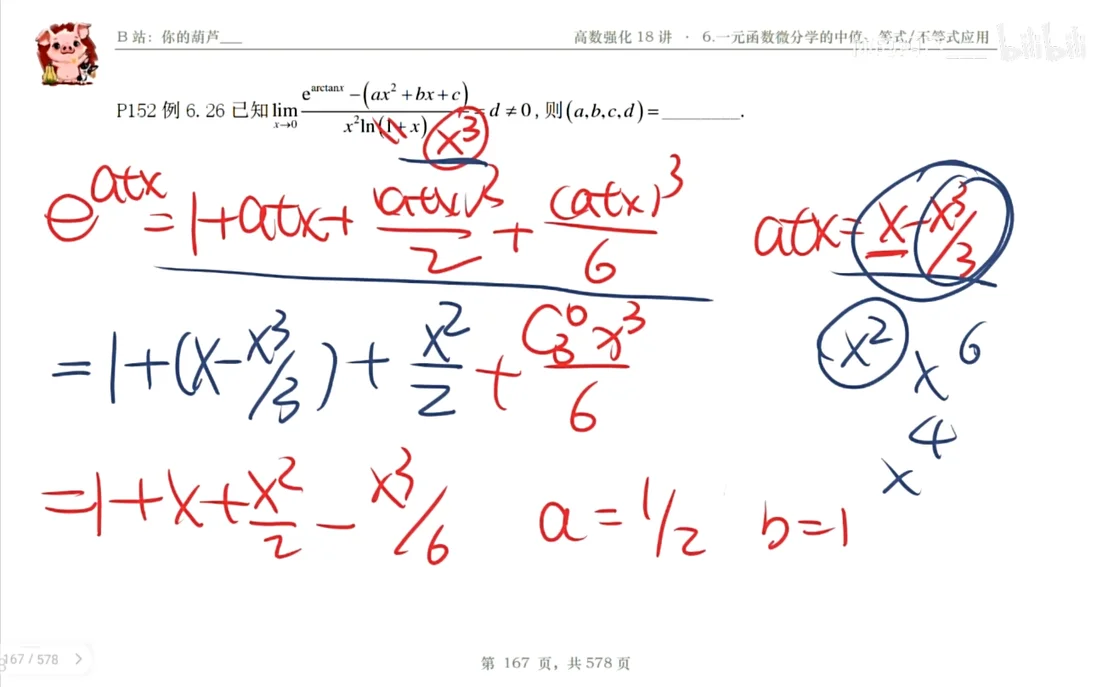 B 站：你的葫芦___
高数强化 18 讲 · 6.一元函数微分学的中值、等式/不等式应用
bilibili
P152 例 6.26 已知 lim x→0 (e^arctanx −(ax²+bx+c))/(x²ln(1+x)) = d ≠ 0, 则(a,b,c,d)=________.
x³
e^atx = 1+atx+ (atx)³/2 + (atx)³/6
atx= x−x³/3
= 1+(x−x³/3)+ x²/2 + C₃⁰x³/6
x² x⁶
x⁴
=1+x+x²/2 − x³/6 a=1/2 b=1
167 / 578 >
第 167 页，共 578 页